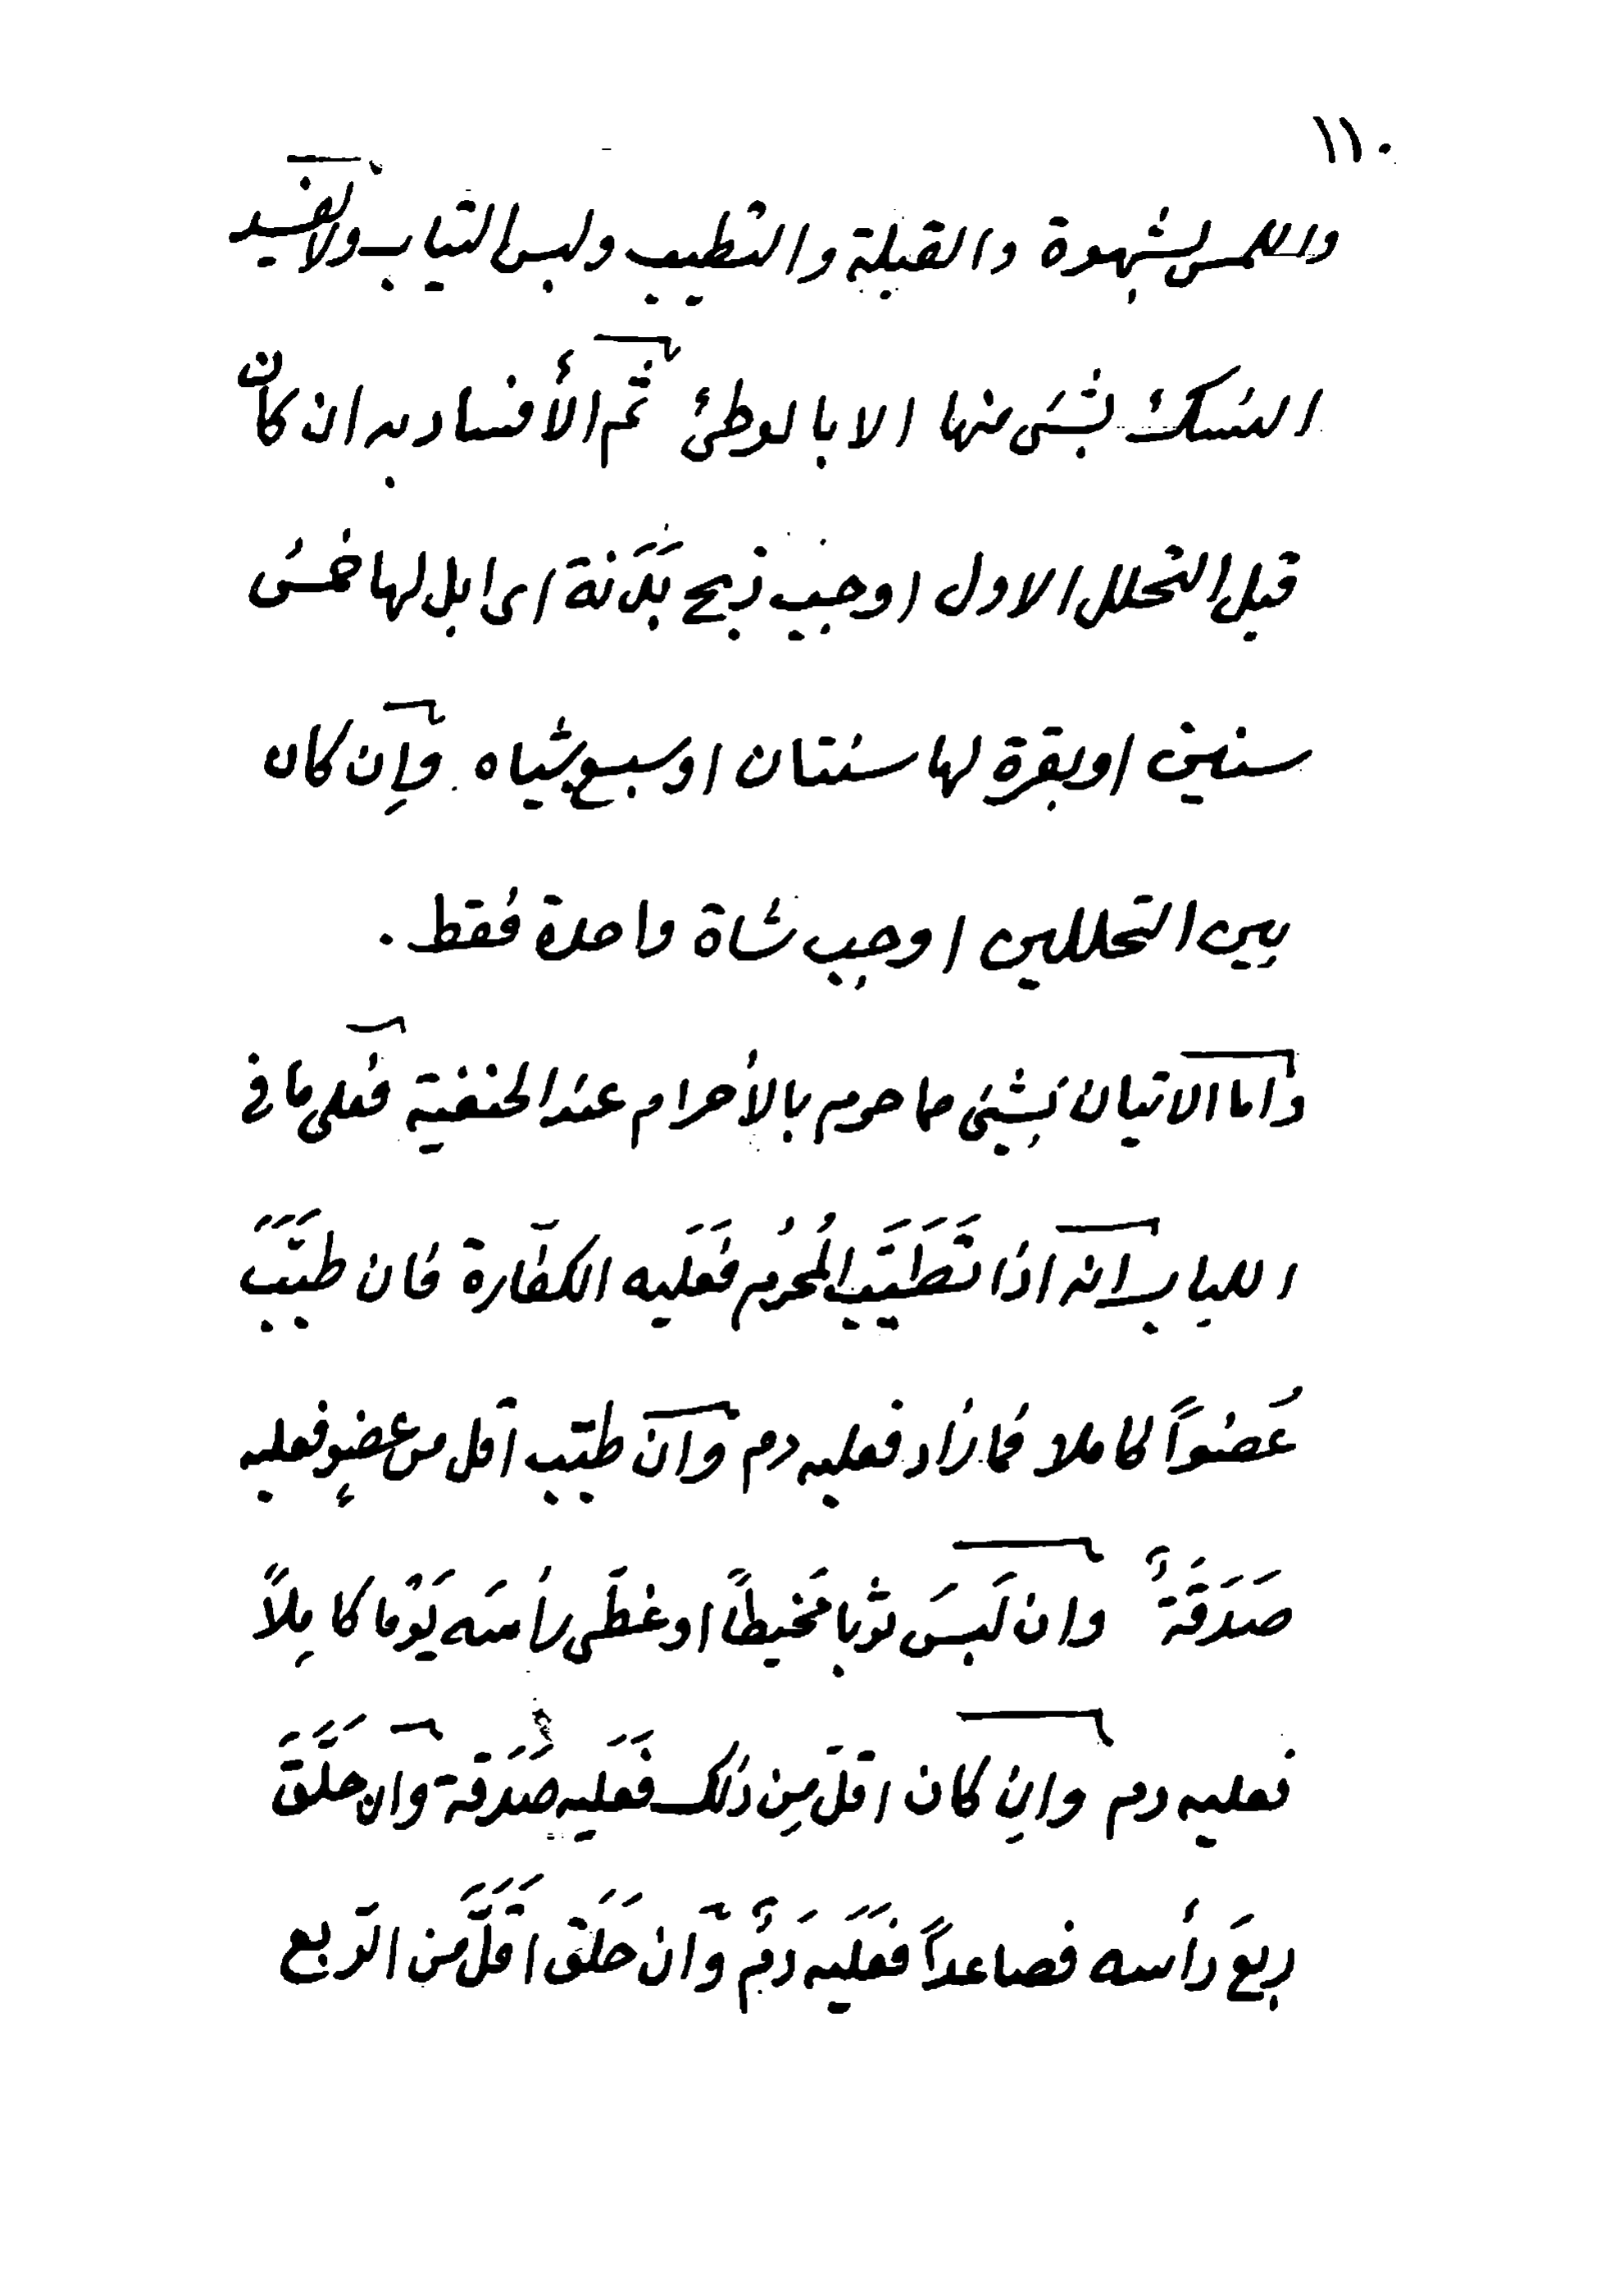 ١١٠
واللمس لشهوة والقبلة والتطيب ولبس الثياب ولا يفسد
النسك بشىَ منها الا بالوطئ ثم الأفساد به ان كان
قبل التحلل الاول اوجب ذبح بَدَنة اى ابل لها خمسُ
سنين او بقرة لها سنتان او سبع شياه . وإن كان
بين التحللين اوجب شاة واحدة فقط .
وأما الاتيان بِشئ مما حرم بالأحرام عند الحنفية فعلى ما فى
اللباب انه اذا تَطَيَّبَ المُحرُم فَعَليه الكفارة فان طيَّبَ
عُضواً كاملا فما زاد فعليه دم وان طيّب اقل من عضوٍ فعليه
صَدَقَةٌ وان لَبِسَ ثوبا مَخيطاً او غطَى رأسَه يَوْما كامِلاً
فعليه دم وإن كان اقلَ مِن ذلك فَعَليه صَدَقة وان حلَّقَ
ربعَ رأسه فصاعداً فعَلَيه دَمٌ وان حَلَق اقلَّ مَن الرّبع